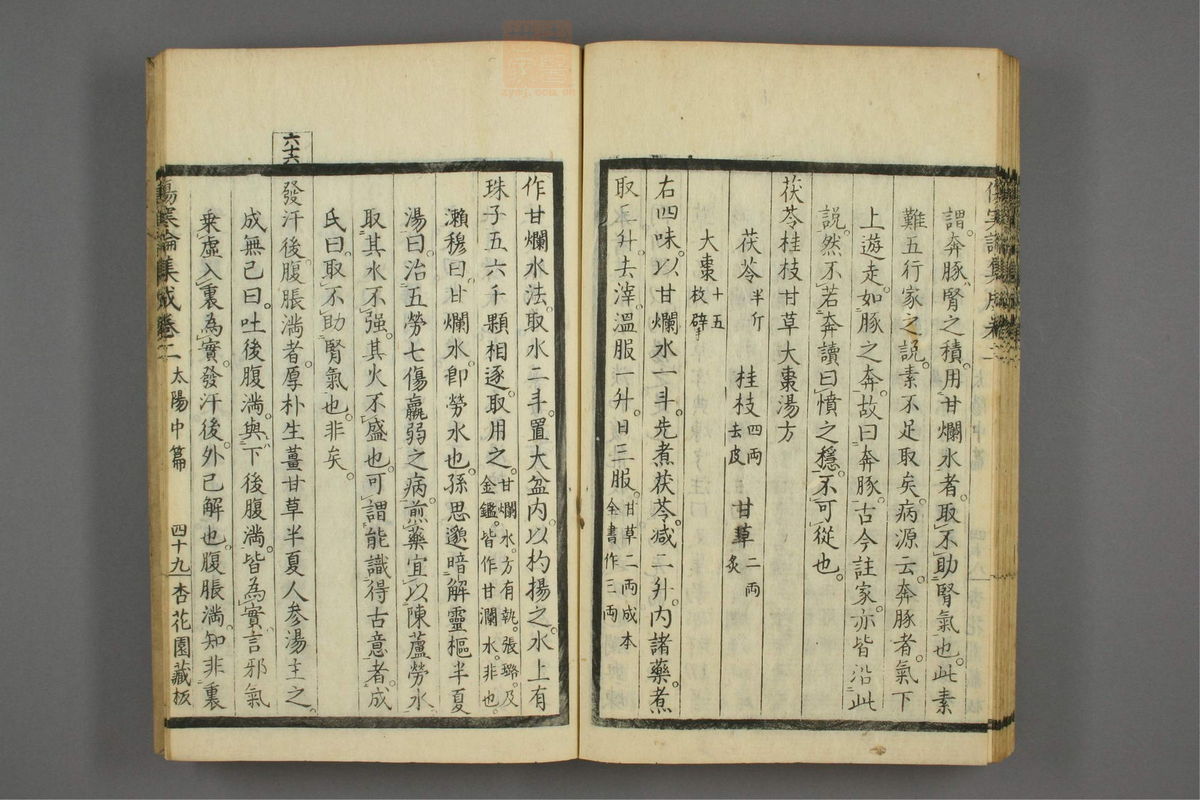 謂奔豚腎之積用甘爛水者取不助腎氣也此素
難五行家之說素不足取矣病源云奔豚者氣下
上遊走如豚之奔故曰奔豚古今註家亦皆沿此
說然不若奔讀曰憤之穩不可從也
茯苓桂枝甘草大棗湯方
茯苓半斤 桂枝四両去皮 甘草二両炙
大棗十五枚擘
右四味以甘爛水一斗先煮茯苓減二升內諸藥煮
取三升去滓溫服一升日三服甘草二両成本全書作三両
傷寒論集成卷二 太陽中篇 四十九 杏花園藏板
作甘爛水法取水二斗置大盆內以杓揚之水上有
珠子五六千顆相逐取用之甘爛水方有執張璐及金鑑皆作甘瀾水非也
瀨穆曰甘爛水卽勞水也孫思邈暗解靈樞半夏
湯曰治五勞七傷羸弱之病煎藥宜以陳蘆勞水
取其水不強其火不盛也可謂能識得古意者成
氏曰取不助腎氣也非矣
六十六
發汗後腹脹滿者厚朴生薑甘草半夏人參湯主之
成無己曰吐後腹滿與下後腹滿皆為實言邪氣
乘虛入裏為實發汗後外已解也腹脹滿知非裏